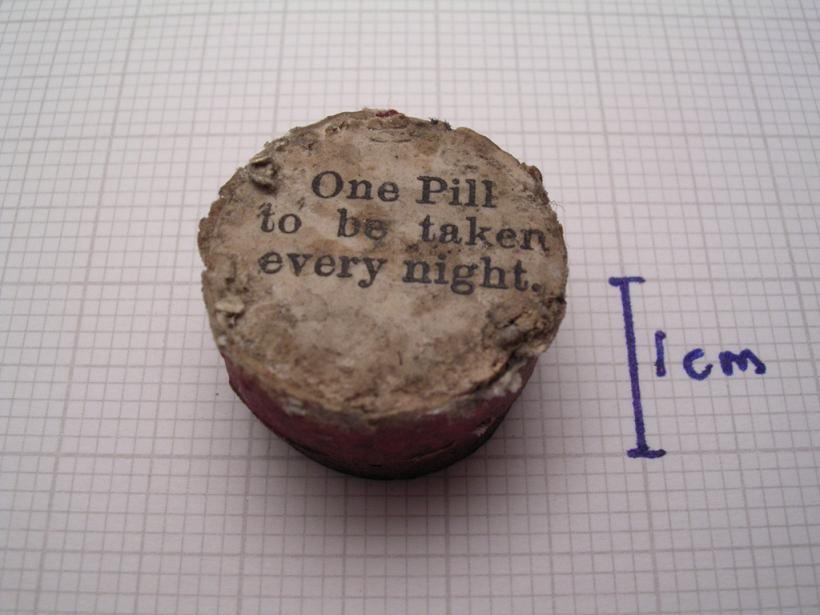 One Pill
to be taken
every night.
1 cm